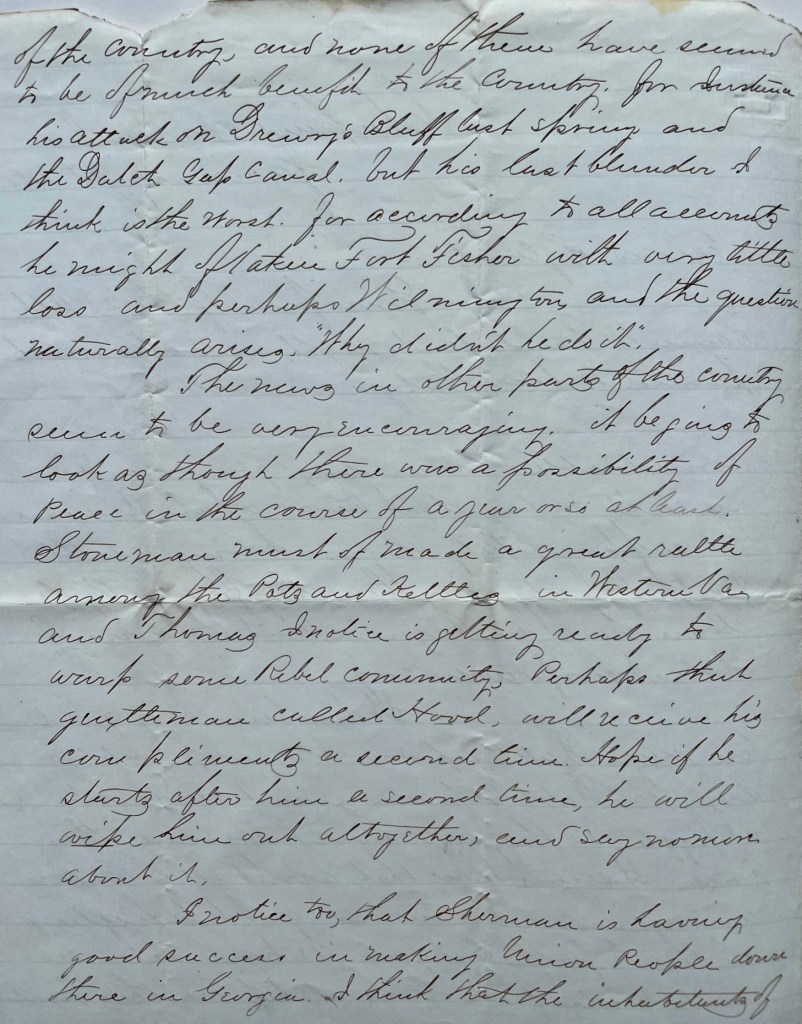 of the country, and none of them have seemed
to be of much benefit to the Country. for Instance
his attack on Drewry's Bluff last spring and
the Dutch Gap Canal. but his last blunder I
think is the worst. for according to all accounts
he might of taken Fort Fisher with very little
loss and perhaps Wilmington, and the question
naturally arises. "Why didn't he do it".
The news in other parts of the country
seem to be very encouraging. it begins to
look as though there was a possibility of
Peace in the course of a year or so at least.
Stoneman must of made a great rattle
among the Pots and Kettles in Western Va,
and Thomas I notice is getting ready to
warp some Rebel community, Perhaps that
gentleman called Hood, will receive his
compliments a second time. Hope if he
starts after him a second time, he will
wipe him out altogether, and say no more
about it.
I notice too, that Sherman is having
good success in making Union People down
there in Georgia. I think that the inhabitants of